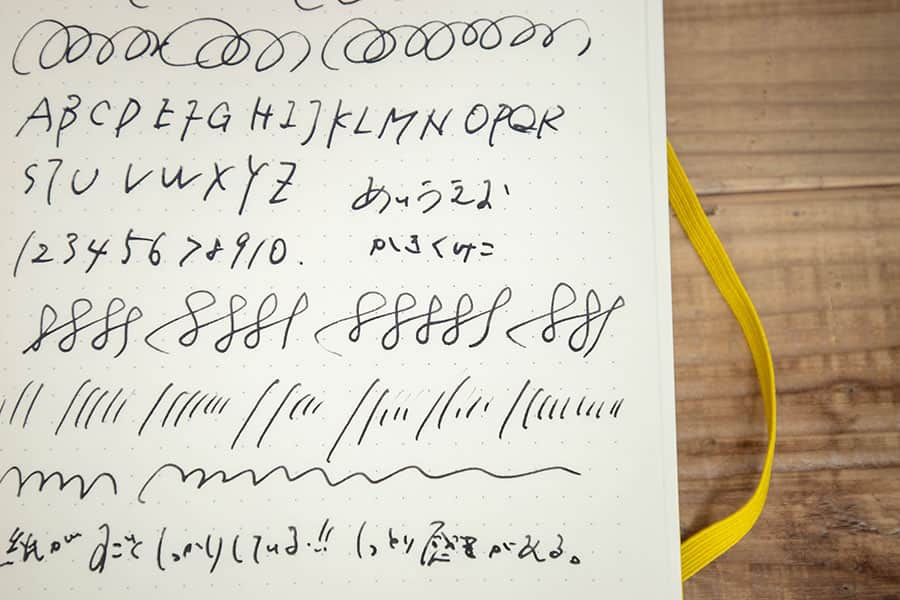 ABCDEFGHIJKLMNOPQR
STUVWXYZ あいうえお
12345678910. かきくけこ
紙が しっかりしている!! しっとり感がある。